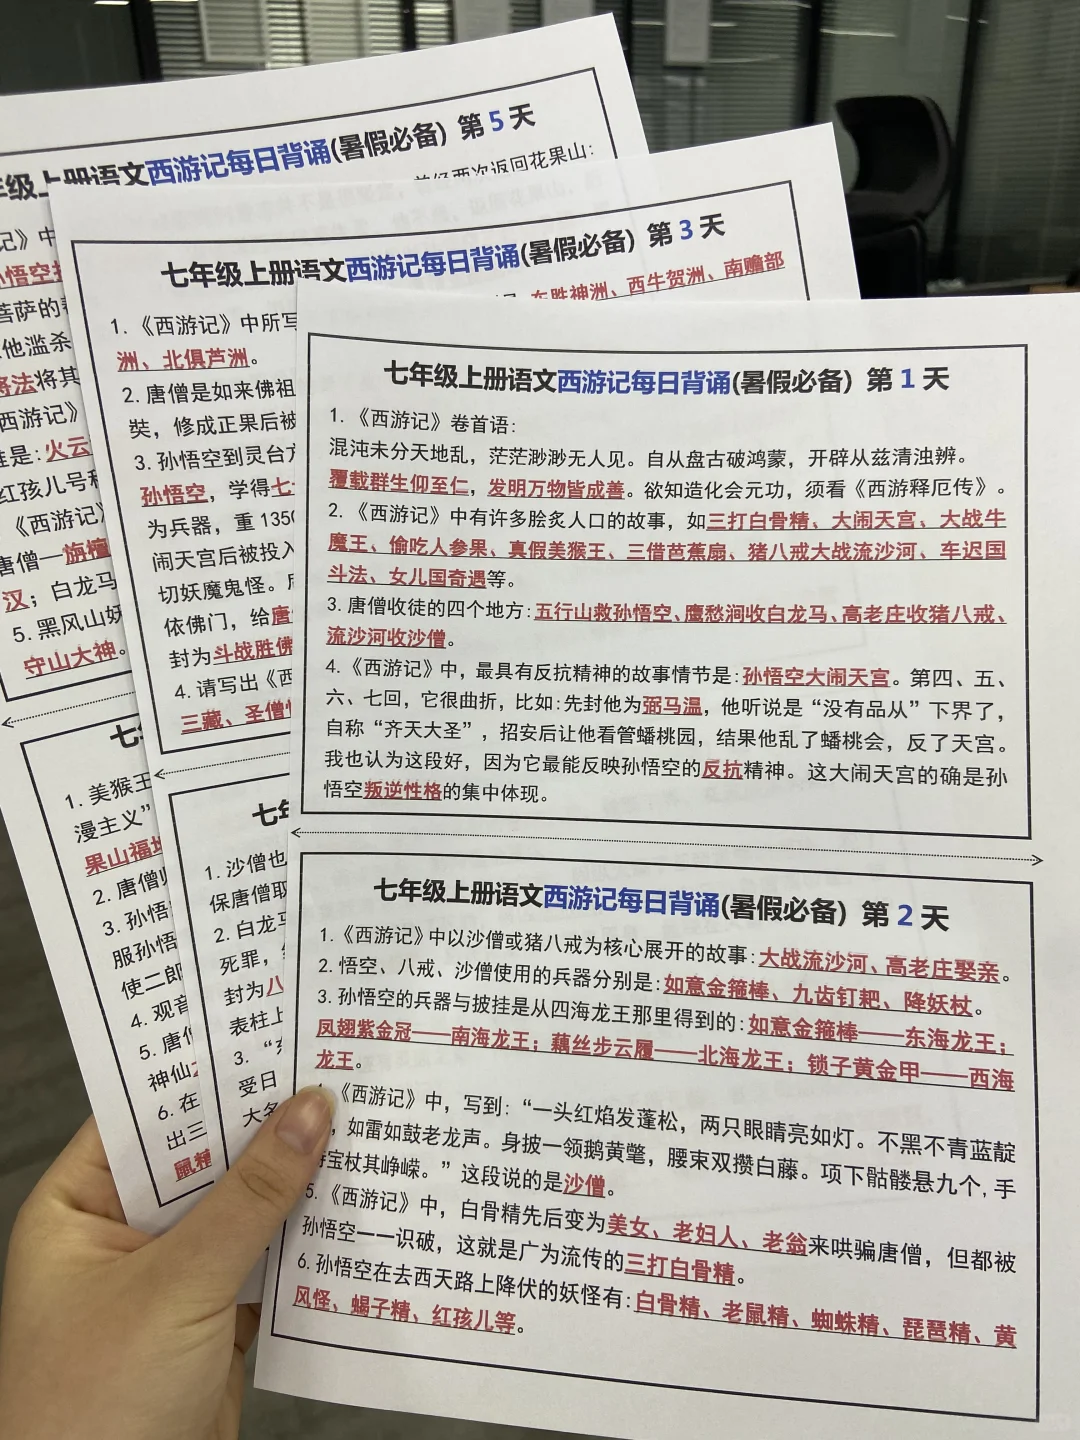 年级上册语文西游记每日背诵(暑假必备) 第5天
曾经两次返回花果山:
记》中
孙悟空
菩萨的
他滥杀
将法将其
西游记》
火云
红孩儿号
《西游记》
唐僧—旃檀
汉；白龙马
5. 黑风山妖
守山大神。
七年级上册语文西游记每日背诵(暑假必备) 第3天
1.《西游记》中所写 东胜神洲、西牛贺洲、南赡部
洲、北俱芦洲。
2. 唐僧是如来佛祖
奘，修成正果后被
3. 孙悟空到灵台方
孙悟空，学得七
为兵器，重1350
闹天宫后被投入
切妖魔鬼怪。
依佛门，给唐
封为斗战胜佛
4. 请写出《西
三藏、圣僧
七年级上册语文西游记每日背诵(暑假必备) 第1天
1.《西游记》卷首语:
混沌未分天地乱，茫茫渺渺无人见。自从盘古破鸿蒙，开辟从兹清浊辨。
覆载群生仰至仁，发明万物皆成善。欲知造化会元功，须看《西游释厄传》。
2.《西游记》中有许多脍炙人口的故事，如三打白骨精、大闹天宫、大战牛
魔王、偷吃人参果、真假美猴王、三借芭蕉扇、猪八戒大战流沙河、车迟国
斗法、女儿国奇遇等。
3. 唐僧收徒的四个地方:五行山救孙悟空、鹰愁涧收白龙马、高老庄收猪八戒、
流沙河收沙僧。
4.《西游记》中，最具有反抗精神的故事情节是:孙悟空大闹天宫。第四、五、
六、七回，它很曲折，比如:先封他为弼马温，他听说是“没有品从”下界了，
自称“齐天大圣”，招安后让他看管蟠桃园，结果他乱了蟠桃会，反了天宫。
我也认为这段好，因为它最能反映孙悟空的反抗精神。这大闹天宫的确是孙
悟空叛逆性格的集中体现。
七年级上册语文西游记每日背诵(暑假必备) 第2天
1.《西游记》中以沙僧或猪八戒为核心展开的故事:大战流沙河、高老庄娶亲。
2. 悟空、八戒、沙僧使用的兵器分别是:如意金箍棒、九齿钉耙、降妖杖。
3. 孙悟空的兵器与披挂是从四海龙王那里得到的:如意金箍棒——东海龙王；
凤翅紫金冠——南海龙王；藕丝步云履——北海龙王；锁子黄金甲——西海
龙王。
《西游记》中，写到:“一头红焰发蓬松，两只眼睛亮如灯。不黑不青蓝靛
，如雷如鼓老龙声。身披一领鹅黄氅，腰束双攒白藤。项下骷髅悬九个,手
持宝杖其峥嵘。”这段说的是沙僧。
5.《西游记》中，白骨精先后变为美女、老妇人、老翁来哄骗唐僧，但都被
孙悟空一一识破，这就是广为流传的三打白骨精。
6. 孙悟空在去西天路上降伏的妖怪有:白骨精、老鼠精、蜘蛛精、琵琶精、黄
风怪、蝎子精、红孩儿等。
七
1. 美猴王
漫主义”
果山福地
2. 唐僧
3. 孙悟
服孙悟
使二郎
4. 观音
5. 唐僧
神仙
6. 在
出三
鼠精
七年
1. 沙僧也
保唐僧取
2. 白龙马
死罪，
封为八
表柱上
3.“
受日
大名